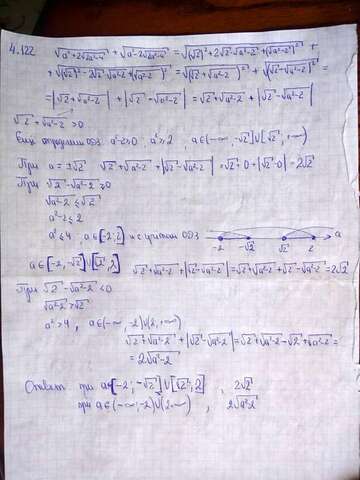 4.122 √(a²+2√(2a²-4)) + √(a²-2√(2a²-4)) = √((√2)²+2√2·√(a²-2)+(√(a²-2))²) +
+ √((√2)²-2√2·√(a²-2)+(√(a²-2))²) = √((√2+√(a²-2))²) + √((√2-√(a²-2))²) =
= |√2+√(a²-2)| + |√2-√(a²-2)| = √2+√(a²-2) + |√2-√(a²-2)|
√2+√(a²-2) >0
Ещё определим ОДЗ a²-2≥0, a²≥2, a∈(-∞; -√2]∪[√2; +∞)
При a=±√2 √2+√(a²-2) + |√2-√(a²-2)| = √2+0+|√2-0| = 2√2
При √2-√(a²-2) ≥0
√(a²-2) ≤ √2
a²-2≤2
a²≤4, a∈[-2; 2] и с учётом ОДЗ
-2 -√2 √2 2 a
a∈[-2; -√2]∪[√2; 2] √2+√(a²-2) + |√2-√(a²-2)| = √2+√(a²-2)+√2-√(a²-2) = 2√2
При √2-√(a²-2) <0
√(a²-2) > √2
a²>4, a∈(-∞; -2)∪(2; +∞)
√2+√(a²-2) + |√2-√(a²-2)| = √2+√(a²-2)-√2+√(a²-2) =
= 2√(a²-2)
Ответ при a∈[-2; -√2]∪[√2; 2], 2√2
при a∈(-∞; -2)∪(2; +∞), 2√(a²-2)